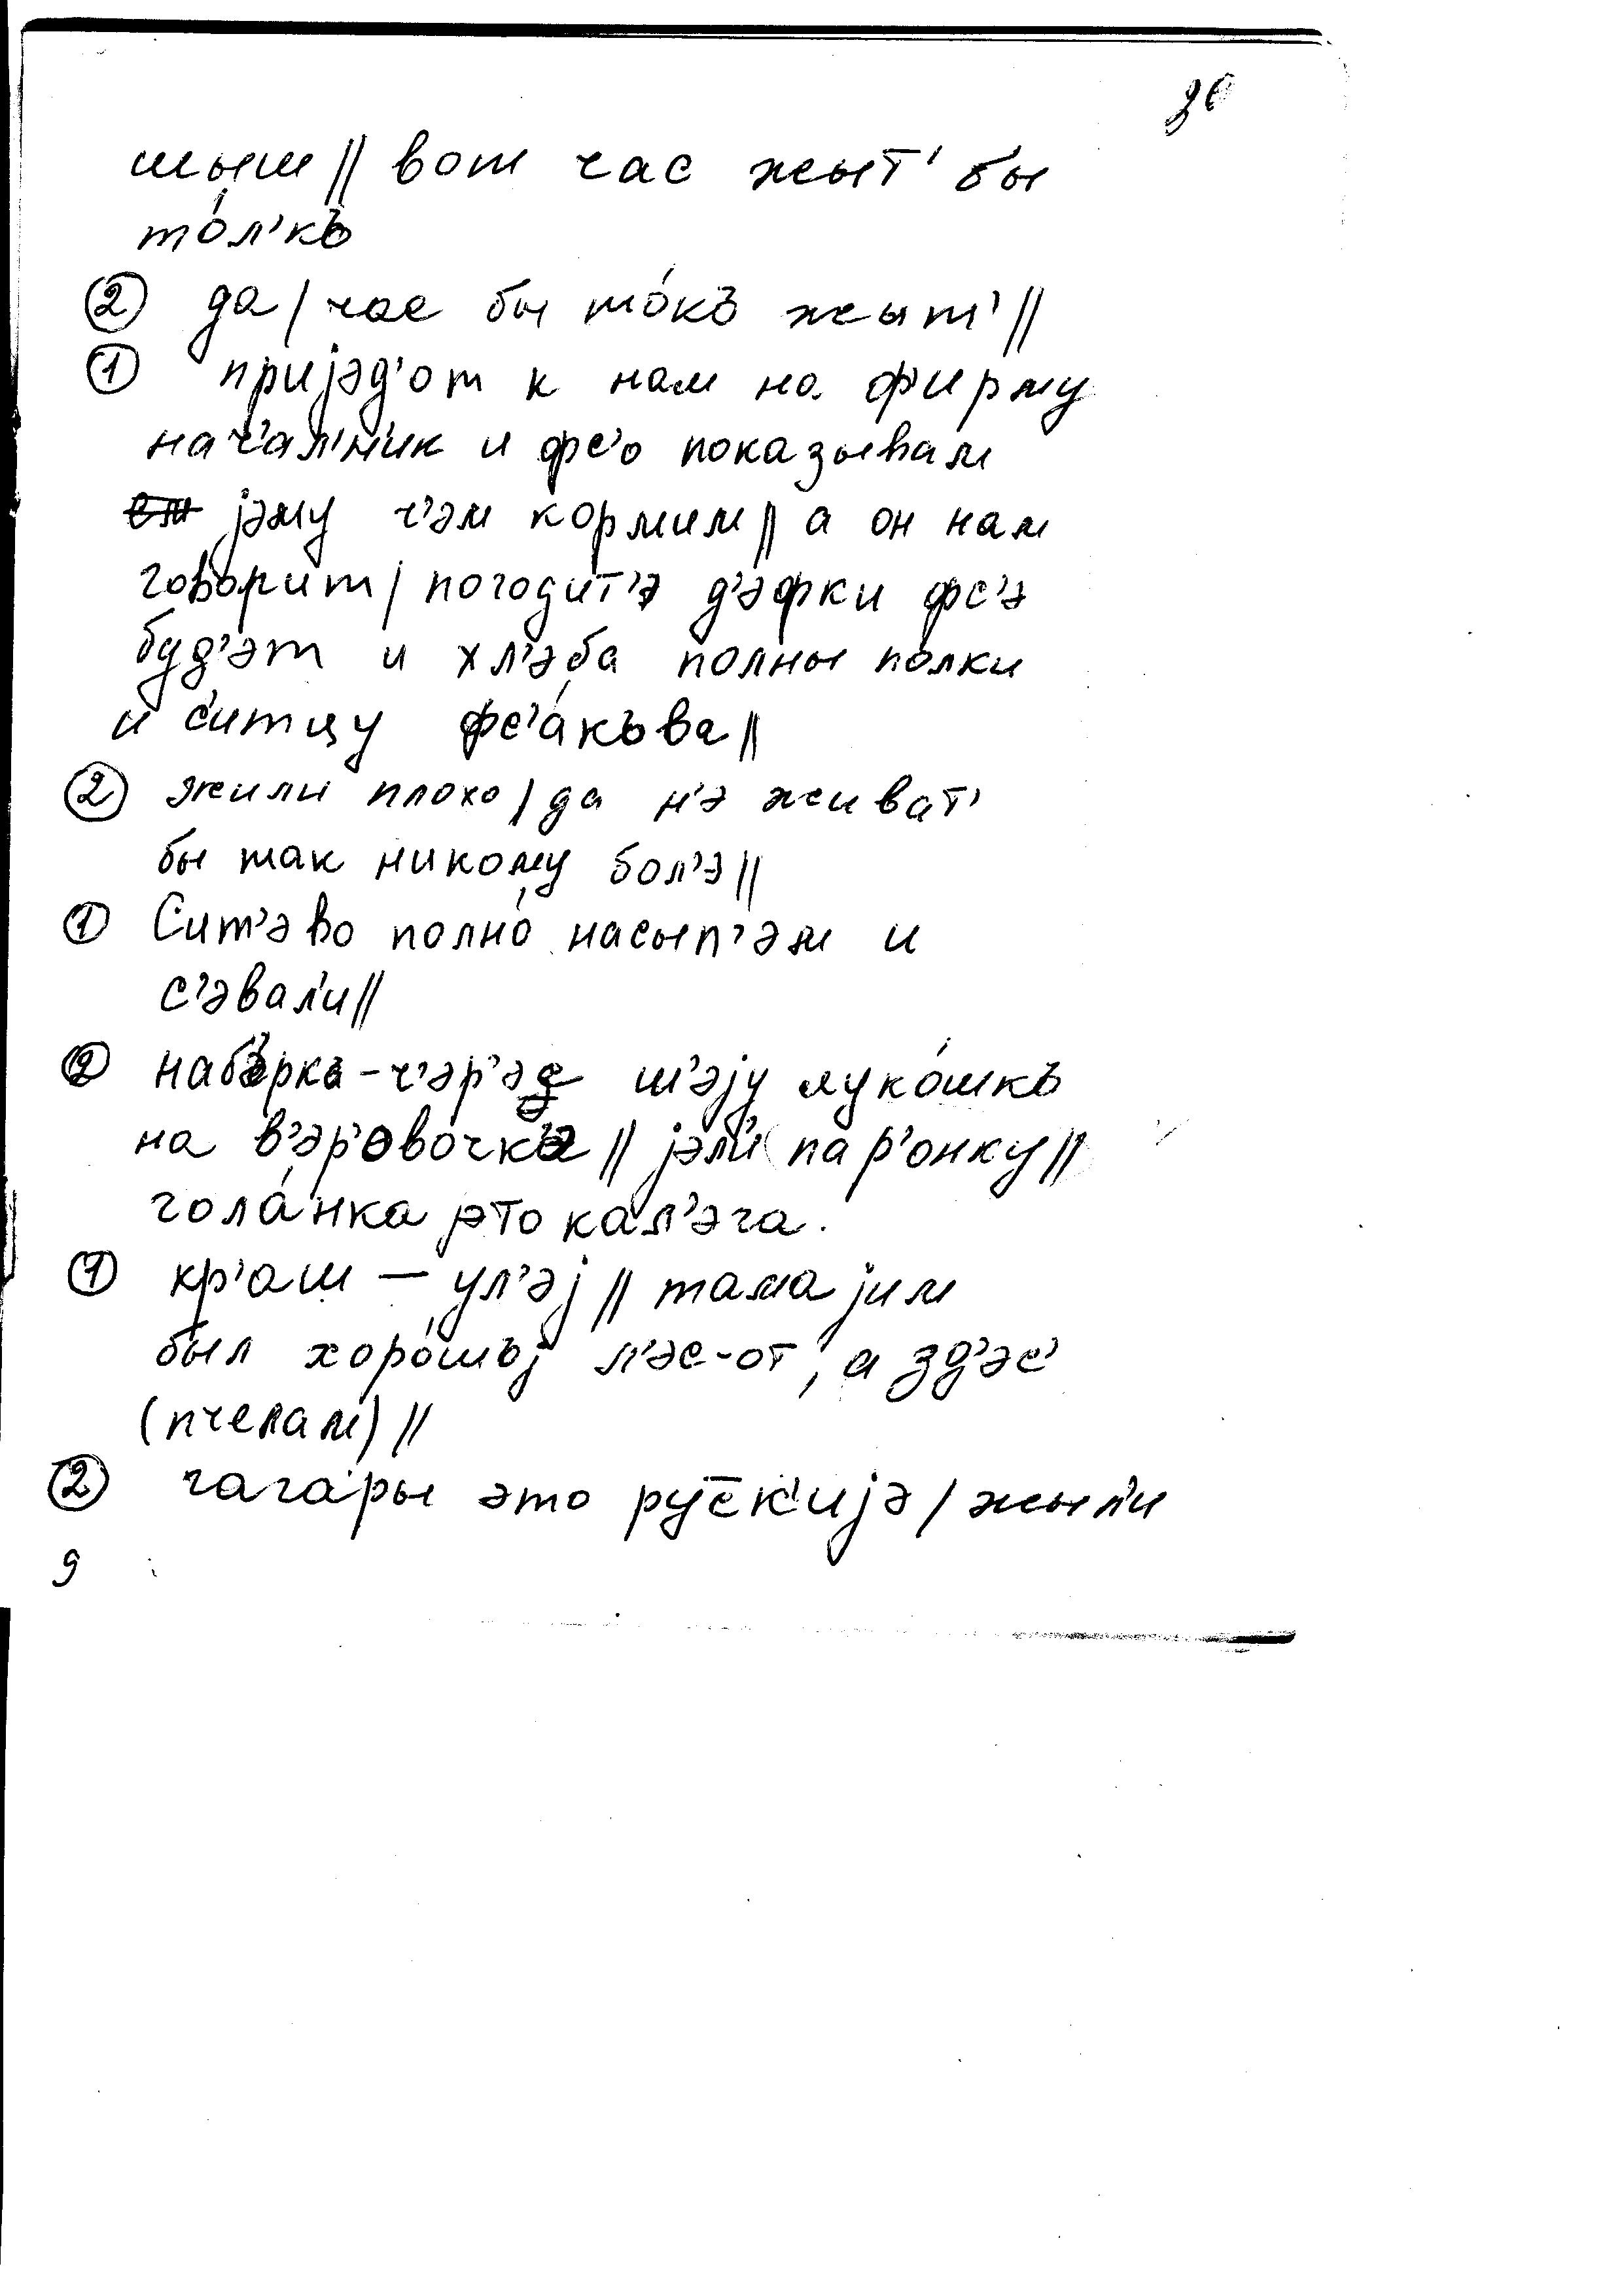 30
шыш || вот час жыт' бы
то́л'къ
② да / час бы то́къ жыт' ||
① пријэд'от к нам на фирму
нач'ал'н'ик и фс'о показывам
јэму ч'эм кормим || а он нам
говорит / погодит'э д'эфки фс'э
буд'эт и хл'эба полны полки
и с'итцу фс'а́къва ||
② жили плохо / да н'э живат'
бы так никому бол'э ||
① Сит'эво полно́ насып'эм и
с'эвал'и ||
② наб'э́рка - ч'эр'эз ш'эју луко́шкъ
на в'эр'овочк'э || јэл'и пар'онку ||
гола́нка јэто кал'эга.
① кр'аш — ул'эј || тама јим
был хоро́шъј л'эс-от, а зд'эс'
(пчелам) ||
② гагары это рус̄к'ијэ / жыл'и
9